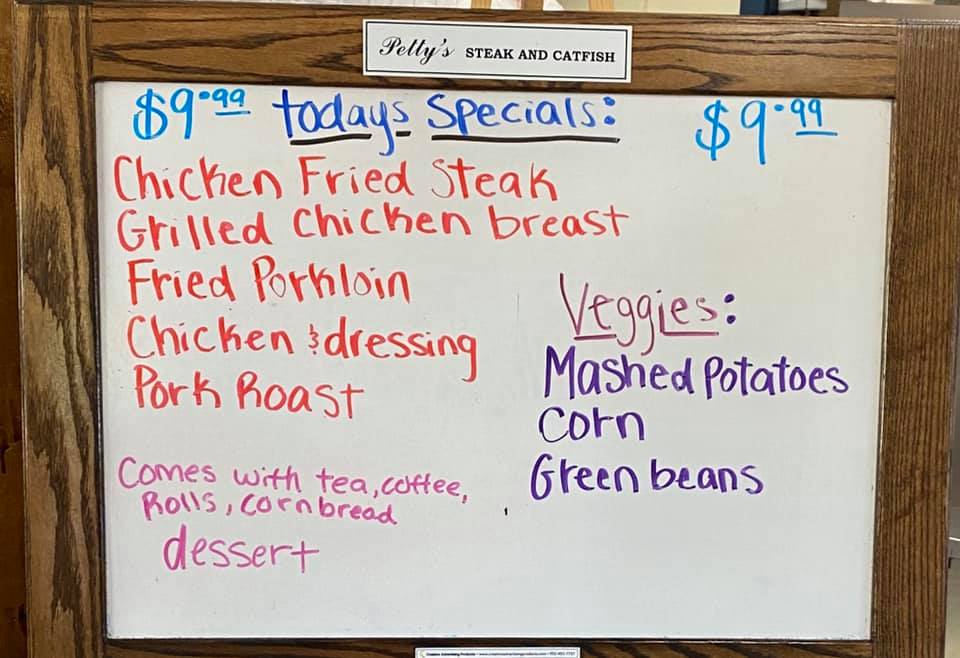 Petty's STEAK AND CATFISH
$9.99 todays Specials: $9.99
Chicken Fried Steak
Grilled Chicken breast
Fried Porkloin
Chicken & dressing
Pork Roast
Veggies:
Mashed Potatoes
Corn
Green beans
Comes with tea, coffee,
Rolls, cornbread
dessert